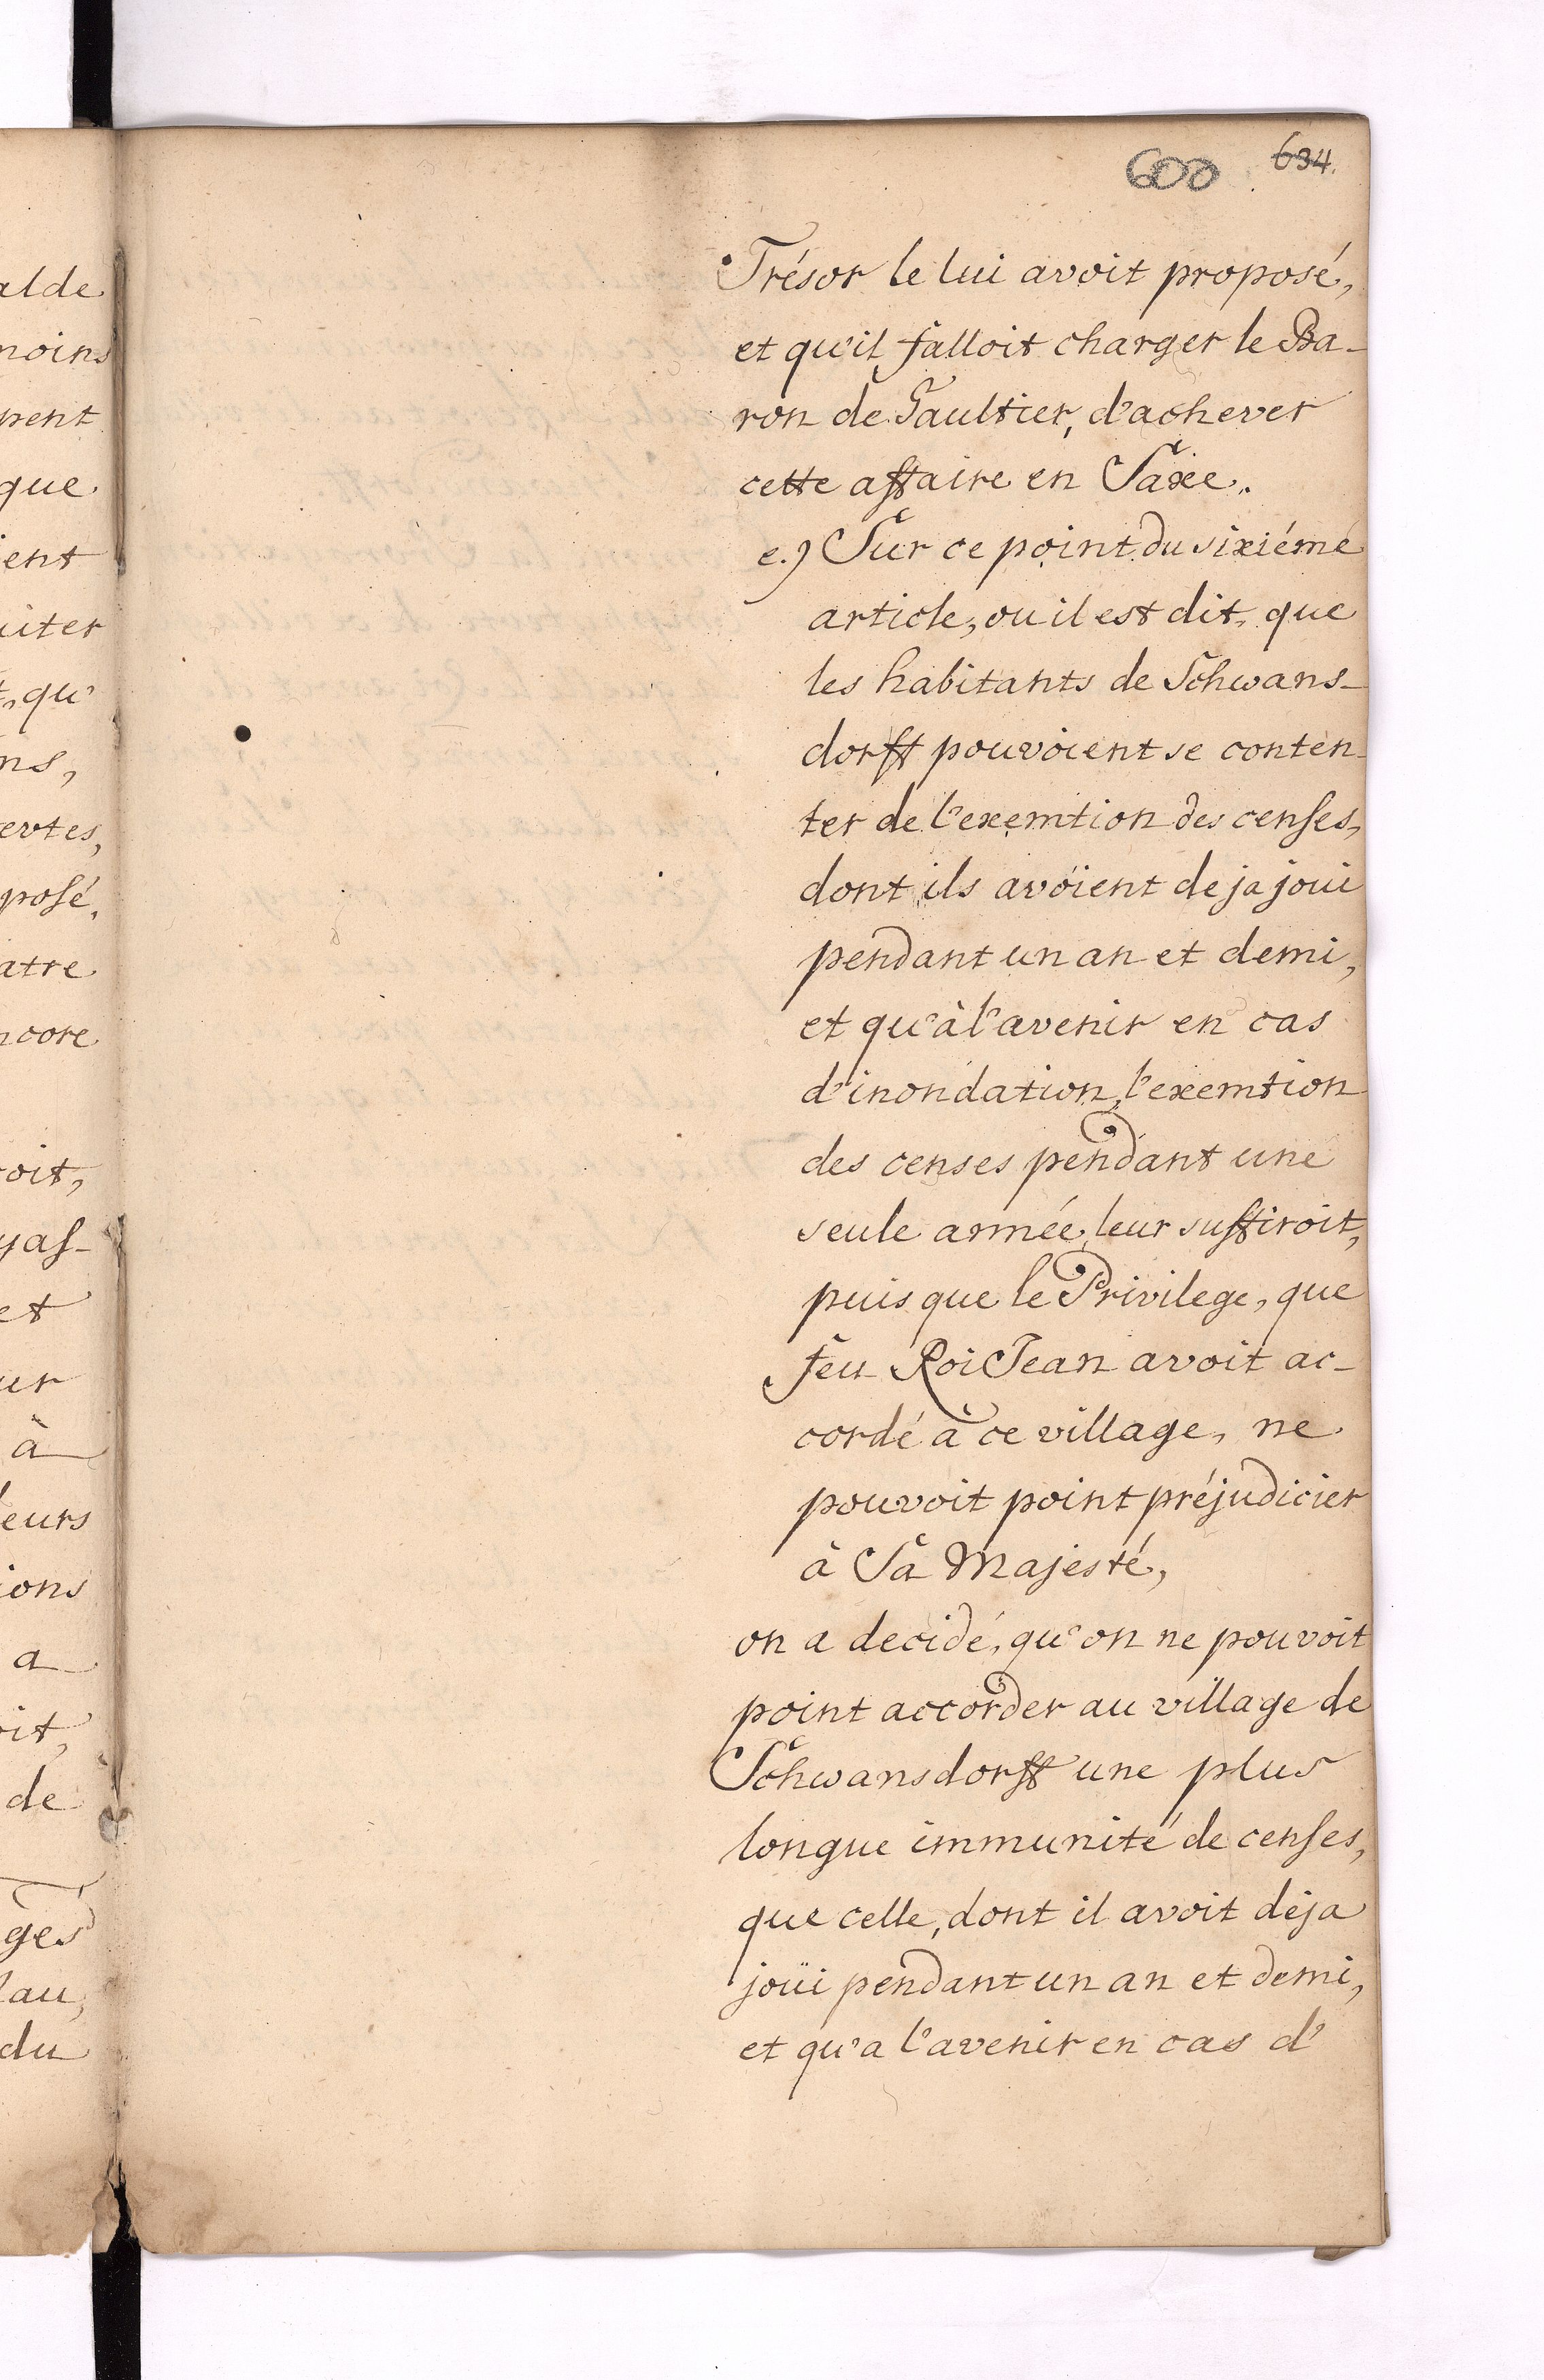 600 634.
Trésor le lui avoit proposé,
et qu'il falloit charger le Ba-
ron de Gaultier, d'achever
cette affaire en Saxe.
e.) Sur ce point du sixiéme
article, ou il est dit, que
les habitants de Schwans-
dorff pouvoient se conten-
ter de l'exemtion des censes,
dont ils avoient deja joui
pendant un an et demi,
et qu'à l'avenir en cas
d'inondation, l'exemtion
des censes pendant une
seule année, leur suffiroit,
puis que le Privilege, que
feu Roi Jean avoit ac-
cordé à ce village, ne
pouvoit point préjudicier
à Sa Majesté,
on a decidé, qu'on ne pouvoit
point accorder au village de
Schwansdorff une plus
longue immunité de censes,
que celle, dont il avoit déja
joüi pendant un an et demi,
et qu'a l'avenir en cas d'
alde
moins
que
ient
uiter
t, qu'
ns,
ertes,
posé,
atre
ncore
oit,
yas-
et
ur
à
leurs
ions
a
oit,
de
ges
lau,
du